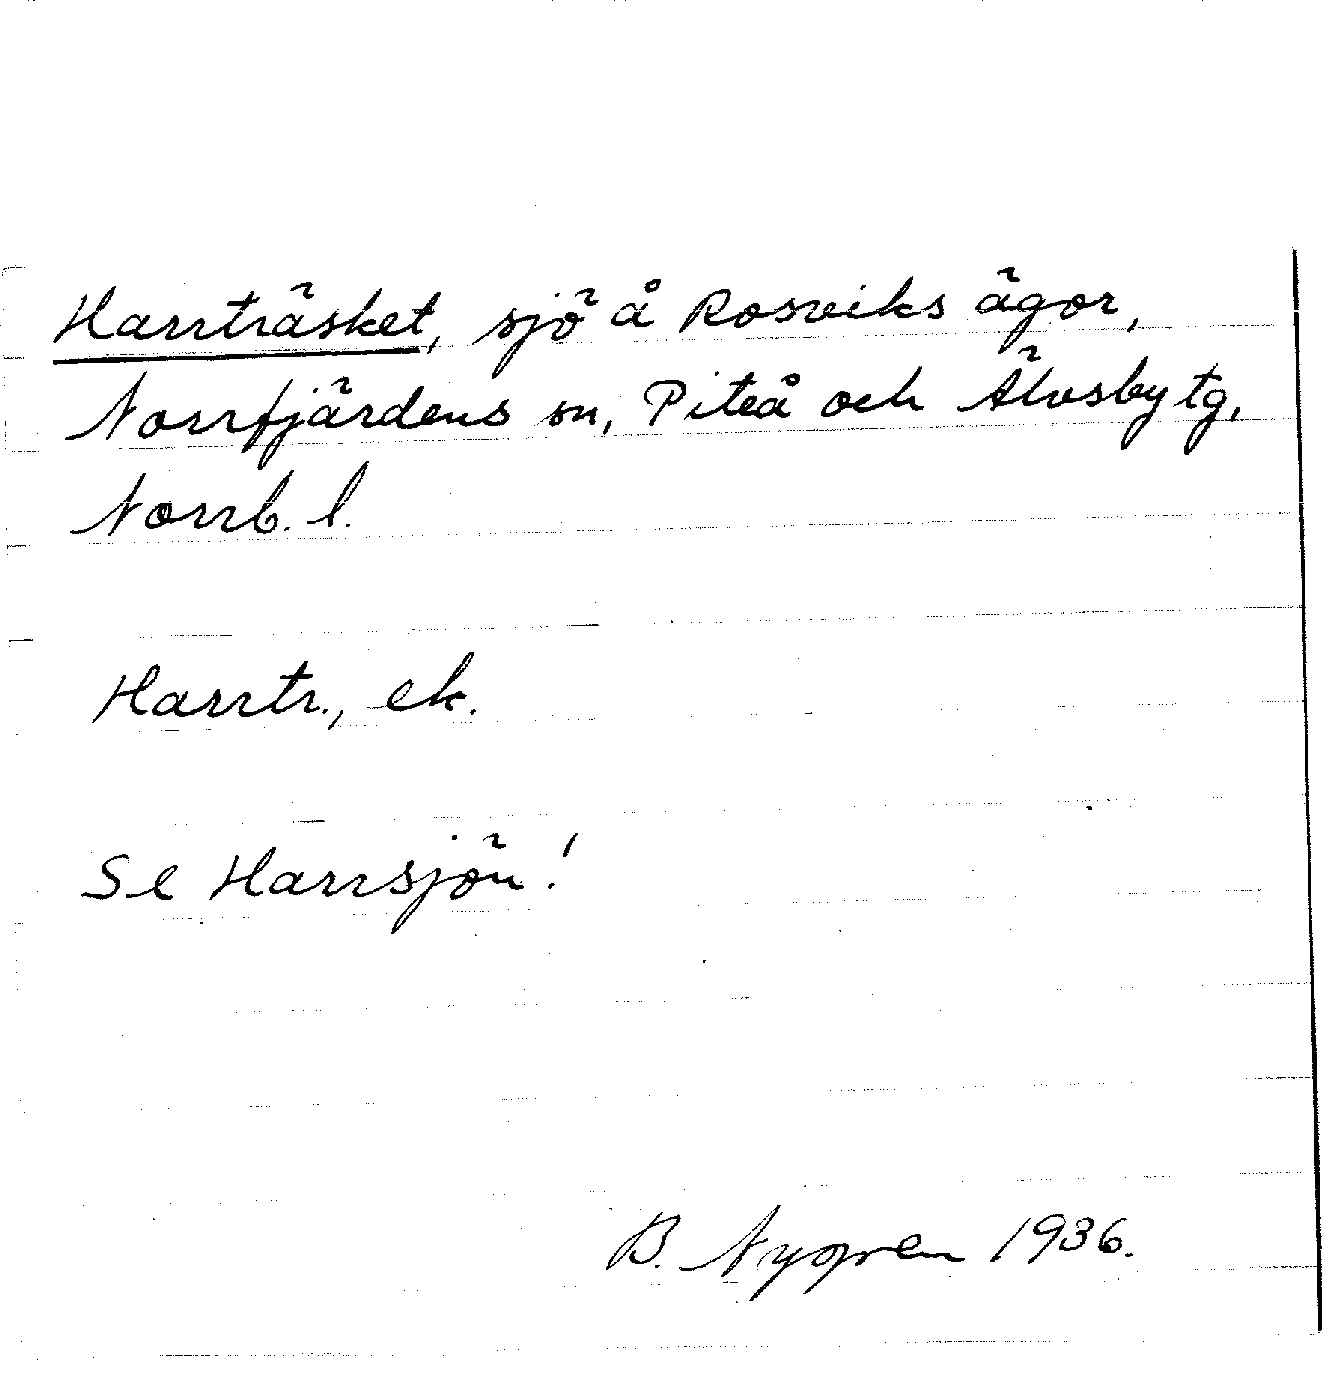 Harrträsket, sjö å Rosviks ägor,
Norrfjärdens sn, Piteå och Älvsby tg,
Norrb. l.
Harrtr., ek.
Se Harrsjön!
B. Nygren 1936.